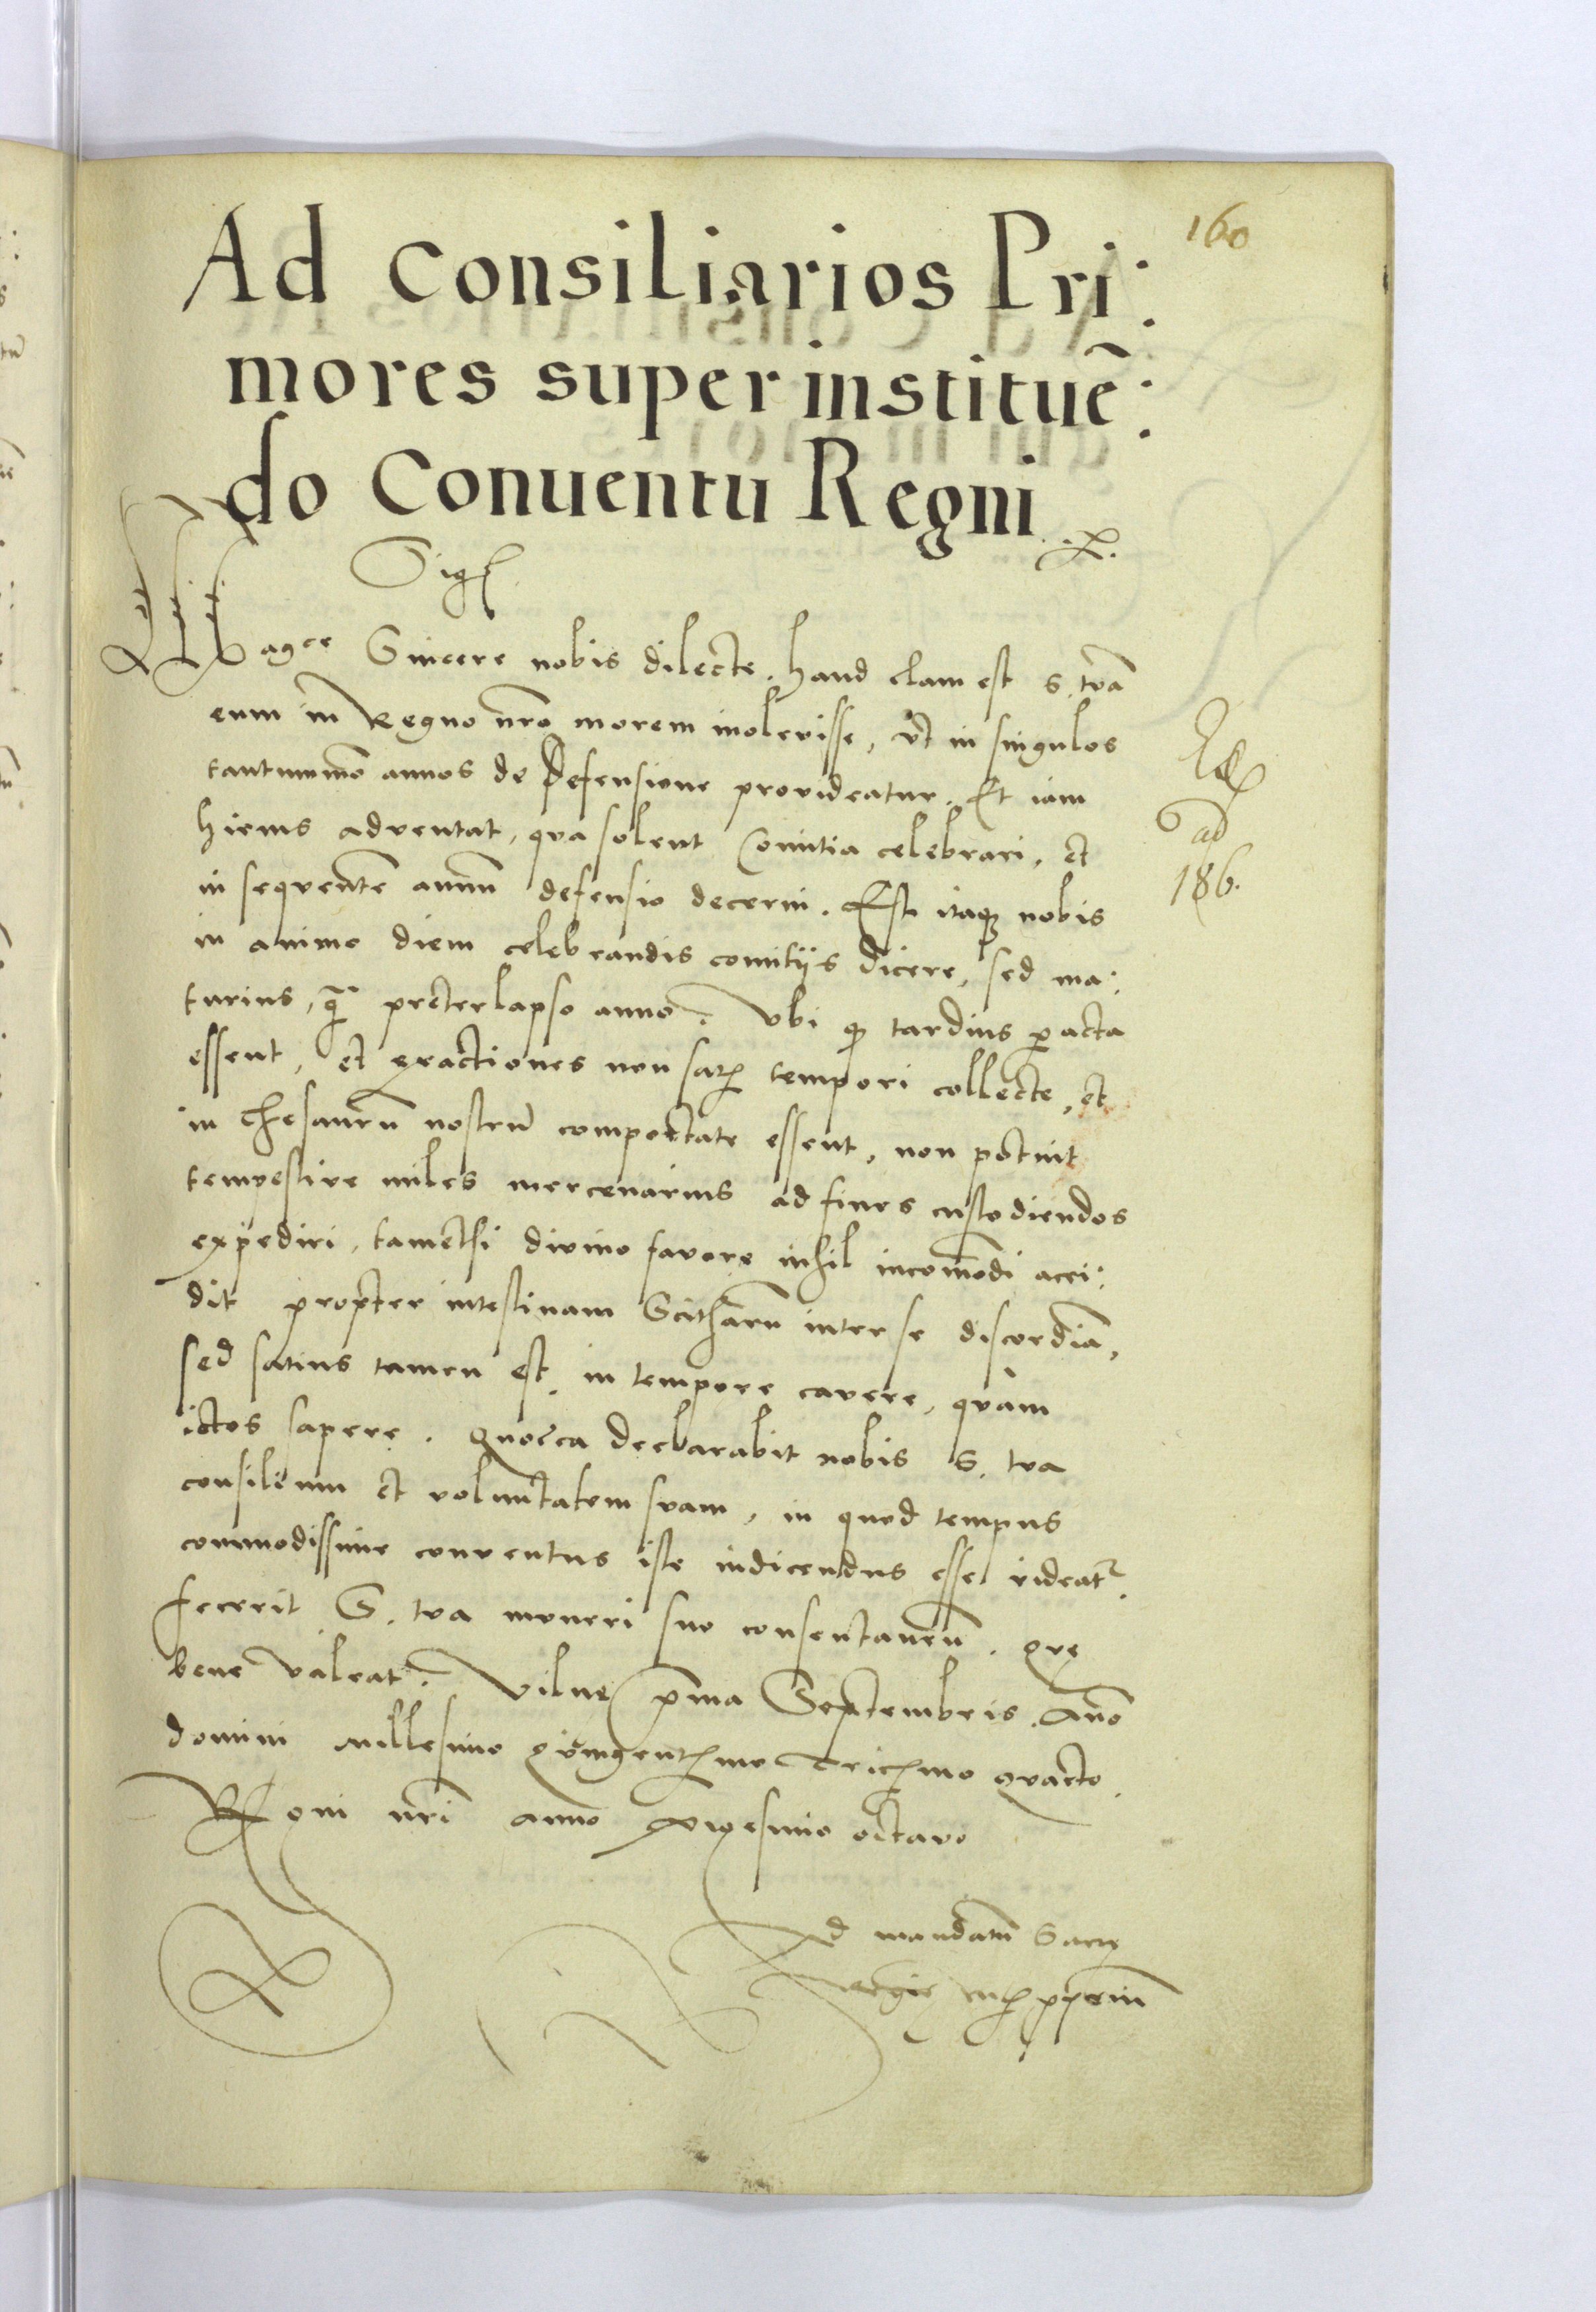 160
Ad Consiliarios Pri:
mores super instituẽ:
do Conuentu Regni
Sig
Magce Sincere nobis dilecte. haud clam est S. tvã
eum in Regno nrõ morem inolevisse, vt in singulos
tantummõ annos de defensione provideatur. Et iam
hiems adventat, qva solent Comitia celebrari, et
in seqventẽ annũ defensio decerni. Est itaqꝫ nobis
in animo diem celebrandis comitijs dicere, sed ma:
turius, q̃ preterlapso anno. Vbi qꝫ tardius peracta
essent, et exactiones non satis tempori collecte, et
in Thesaurũ nostrũ comportate essent, non potuit
tempestive miles mercenarius ad fines custodiendos
expediri, tametsi divino favore nihil incommõdi acci:
dit propter intestinam Scitharũ inter se discordiã,
sed satius tamen est, in tempore cavere, qvam
ictos sapere. Qvocca declarabit nobis S. tva
consilium et voluntatem svam, in qvod tempus
commodissime conventus iste indicendus esse videatr.
fecerit S. tva mvneri suo consentaneũ. Qvę
bene valeat. Vilnę pma Septembris. Anõ
domini millesimo qvingentesimo Tricesimo qvarto.
Regni nrĩ anno vigesimo octavo
Ad mandatũ Sacrę
Regię mtis ppriũ
ad
186.